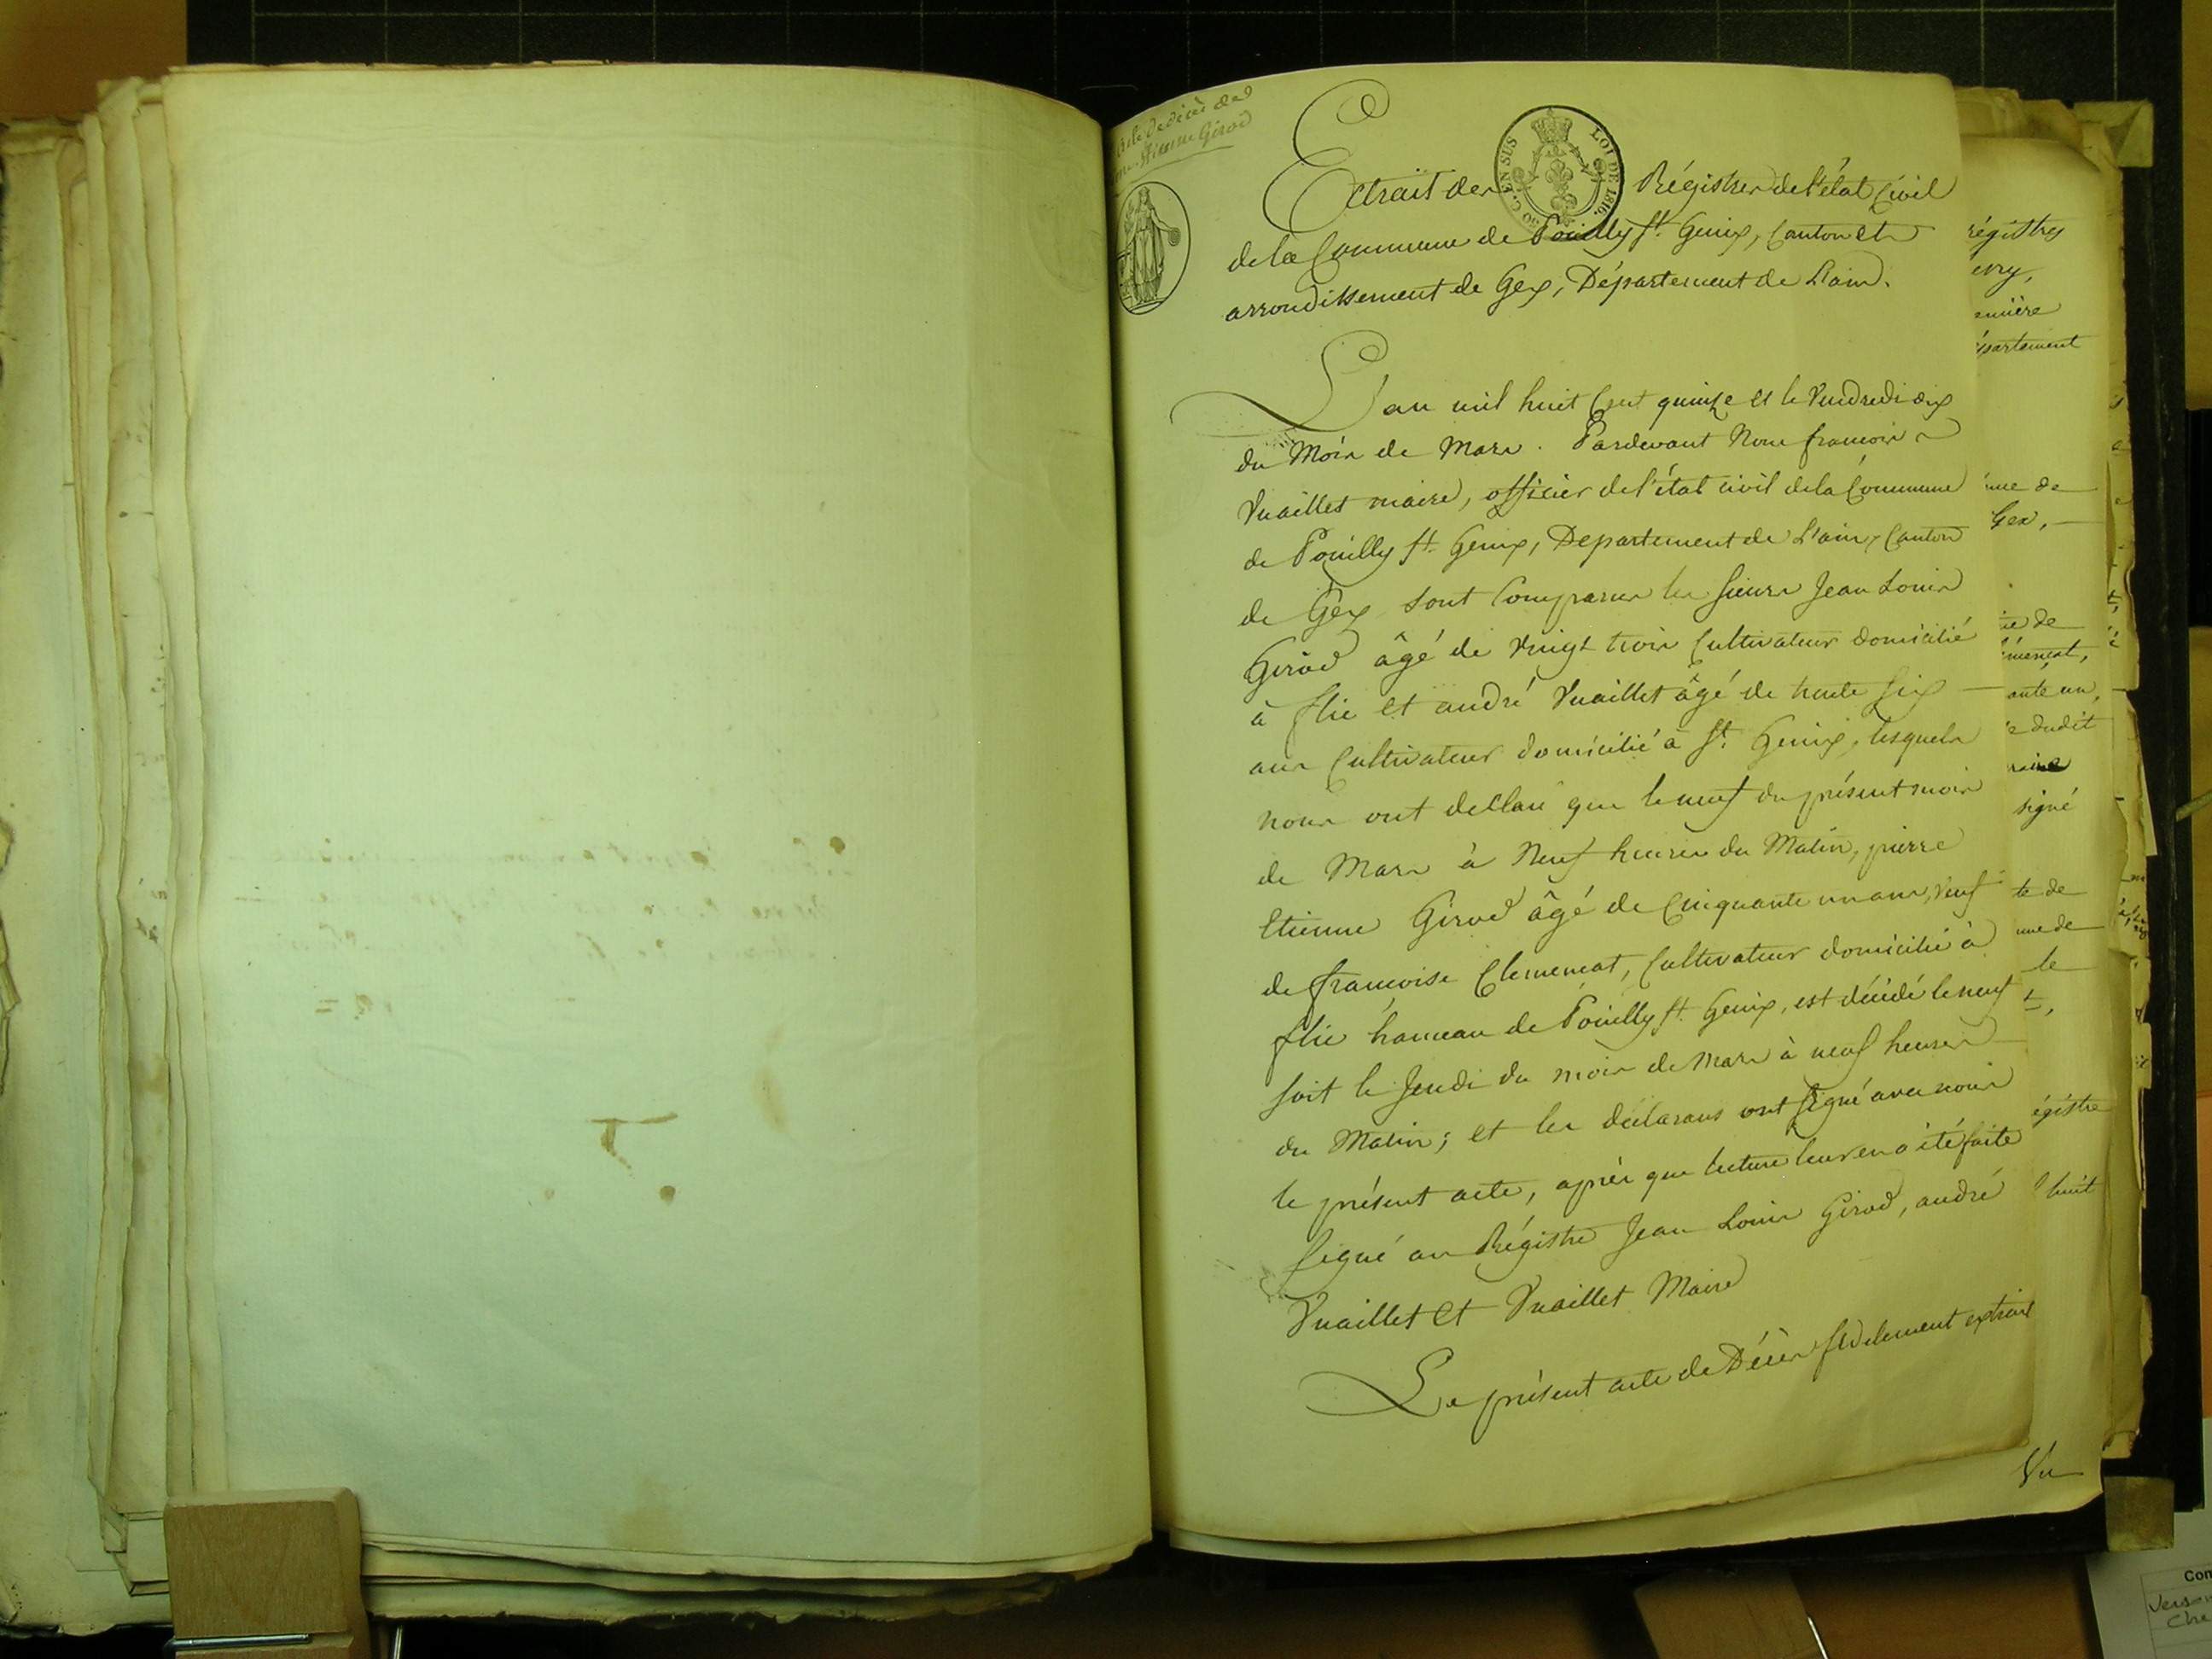 de décès de
Etienne Girod
EN SUS
LOI DE 1816.
50 C.
Extrait des Régistres de l'état Civil
de la Commune de Pouilly St. Genix, Canton et
arrondissement de Gex, Département de L'ain.
L'an mil huit Cent quinze et le Vendredi dix
du Mois de Mars. Pardevant Nous françois
Vuaillet maire, officier de l'état civil de la Commune
de Pouilly St. Genix, Departement de L'ain, Canton
de Gex sont Comparus les Sieurs Jean Louis
Girod âgé de Vingt trois Cultivateur domicilié
à flie et andré Vuaillet âgé de trente Six
ans Cultivateur domicilié à St. Genix, lesquels
nous ont déclaré que le neuf du présent mois
de Mars à Neuf heures du Matin, pierre
Etienne Girod âgé de Cinquante un ans, Veuf
de françoise Clemencat, Cultivateur domicilié à
flie hameau de Pouilly St. Genix, est décédé le neuf
soit le Jeudi du mois de Mars à neuf heures
du Matin; et les déclarans ont Signé avec nous
le présent acte, après que lecture leur en a été faite
Signé au Régistre Jean Louis Girod, andré
Vuaillet et Vuaillet Maire
Le présent acte de Décès fidelement extrait
régistres
partement
Gex,
dudit
signé
te de
une de
le
égistre
huit
Vu